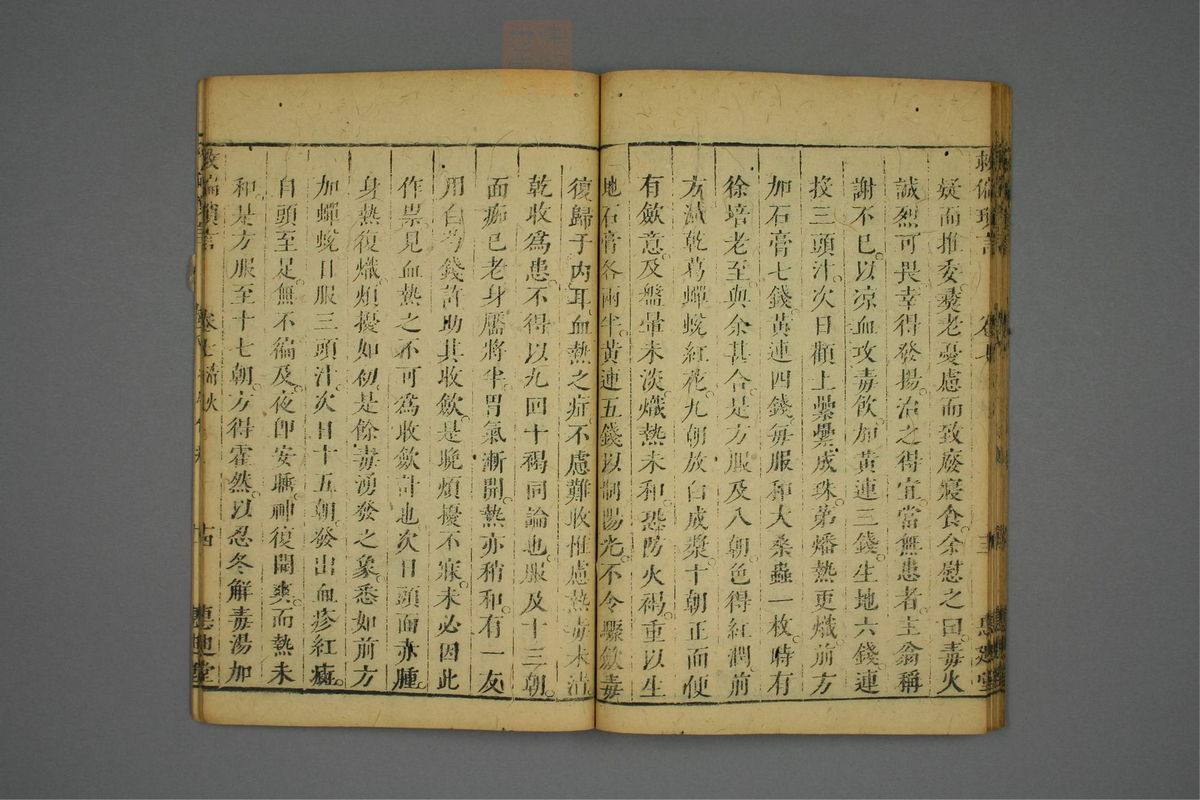 疑而推委耋老憂慮而致廢寢食余慰之曰毒火
誠烈可畏幸得發揚治之得宜當無患者主翁稱
謝不已以凉血攻毒飲加黃連三錢生地六錢連
投三頭汁次日顴上纍纍成珠弟燔熱更熾前方
加石膏七錢黃連四錢每服和大桑蟲一枚時有
徐培老至與余甚合是方服及八朝色得紅潤前
方減乾葛蟬蛻紅花九朝放白成漿十朝正面便
有歛意及盤暈未淡熾熱未和恐防火褐重以生
地石膏各兩半黃連五錢以制陽光不令驟歛毒
復歸于內耳血熱之症不慮難收惟慮熱毒未清
乾收為患不得以九回十褐同論也服及十三朝
面痂已老身靨將半胃氣漸開熱亦稍和有一友
用白芍錢許助其收歛是晚煩擾不寐未必因此
作祟見血熱之不可為收歛計也次日頭面亦腫
身熱復熾煩擾如初是餘毒湧發之象悉如前方
加蟬蛻日服三頭汁次日十五朝發出血疹紅㿔
自頭至足無不徧及夜卽安寤神復開爽而熱未
和是方服至十七朝方得霍然以忍冬解毒湯加
卷七
十四
惠迪堂